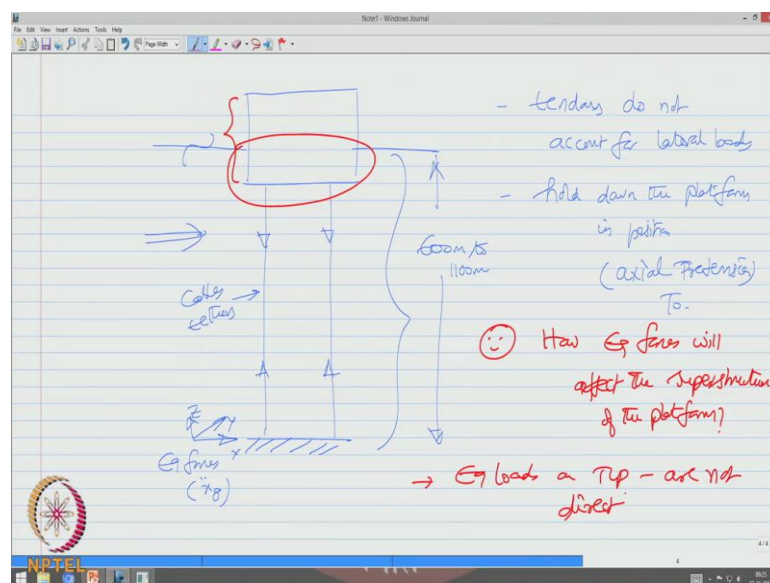 Note1 - Windows Journal
File Edit View Insert Actions Tools Help
Page Width
- tendons do not
account for lateral loads
- hold down the platform
in position
(axial Pretension)
To.
600m to
1100m
Cables
tethers
How Eq forces will
affect the superstructure
of the platform?
Z
Y
X
Eq forces
(ẍg)
→ Eq loads on TLP - are not
direct
NPTEL
4/4
4